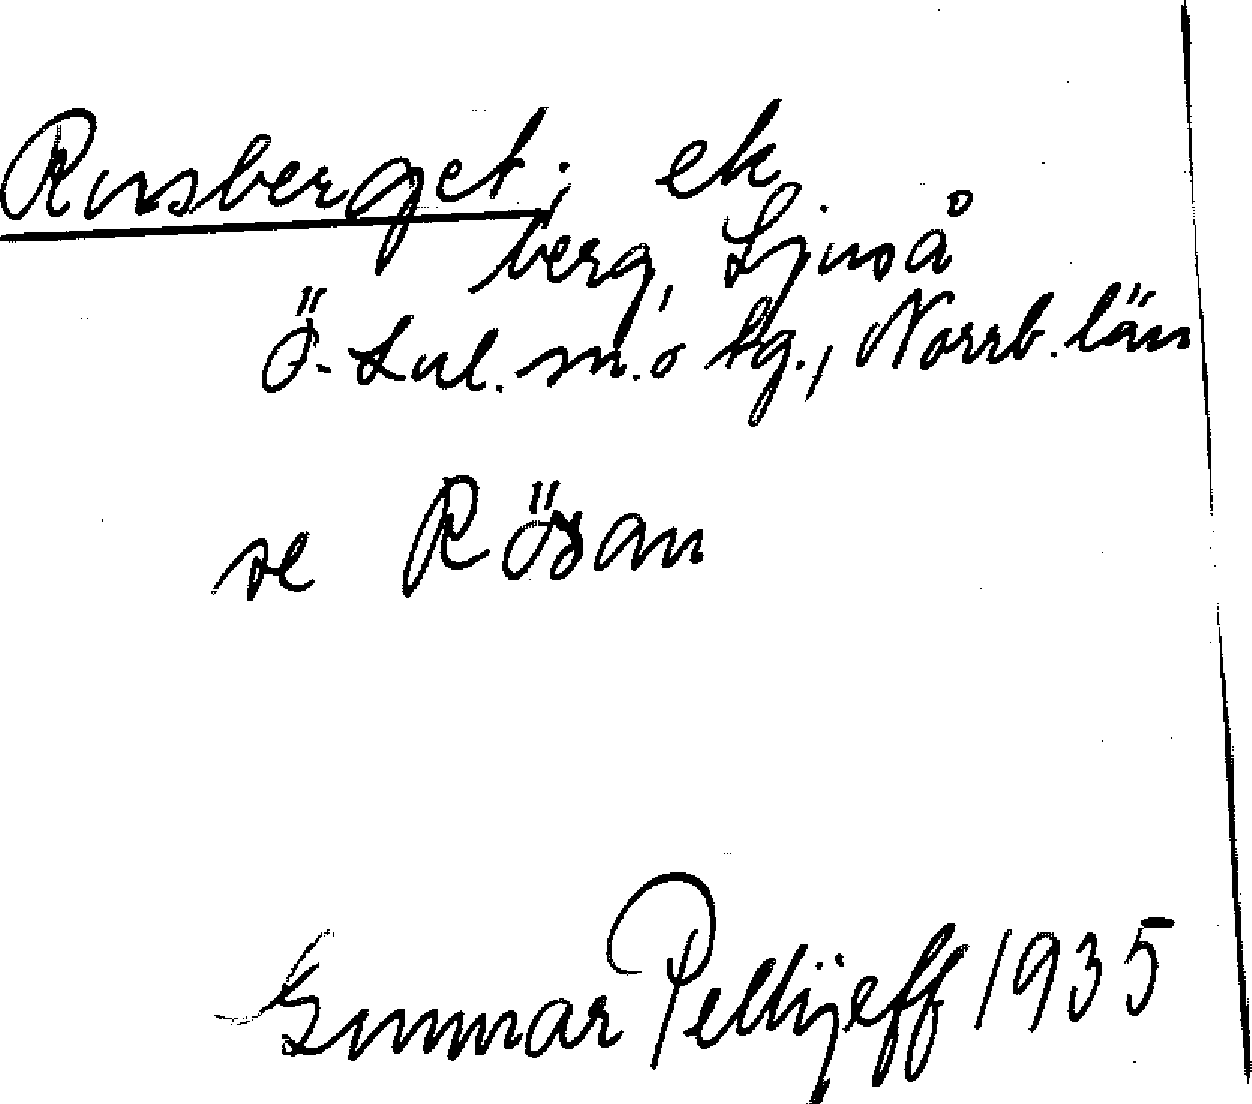 Rusberget; ek
berg, Ljuså
Ö. Lul. sn. o tg., Norrb. län
se Rösan
Gunnar Pellijeff 1935